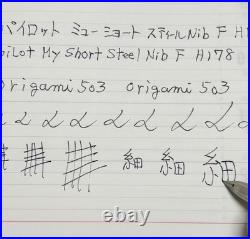 パイロット ミューショート スティールNib F H1
Pilot My Short Steel Nib F H178
origami 503 origami 503
細 細 細